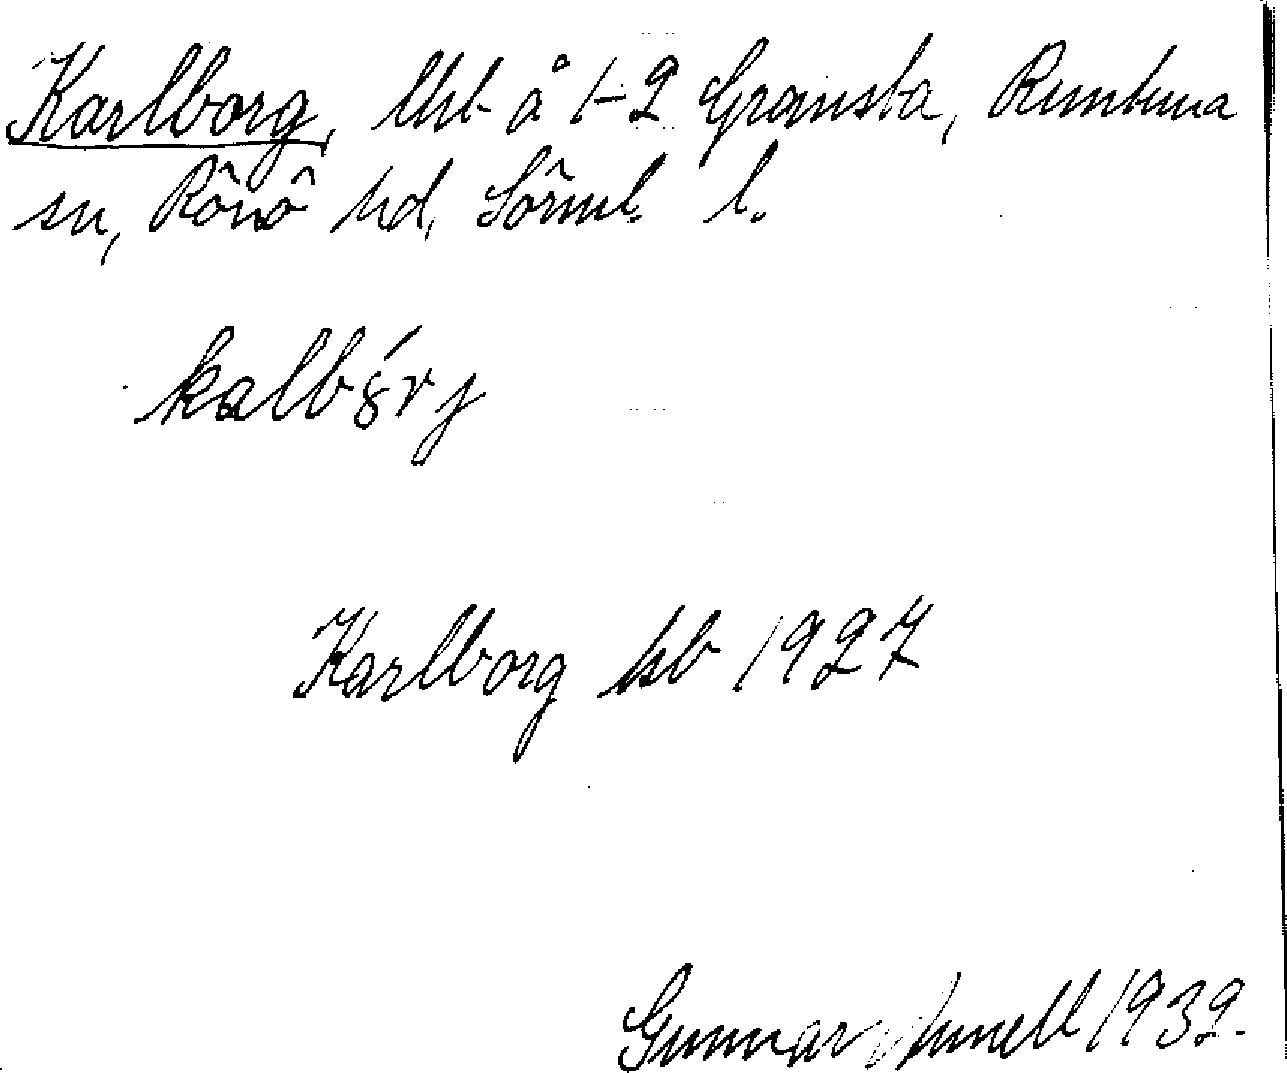 Karlborg, lht å 1-2 Gransta, Runtuna
sn, Rönö hd, Sörml. l.
kalbórj
Karlborg kb 1927
Gunnar 1939.